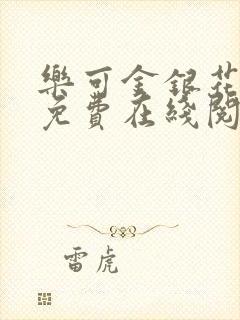 樂可金銀花
免費在綫閱
雷虎